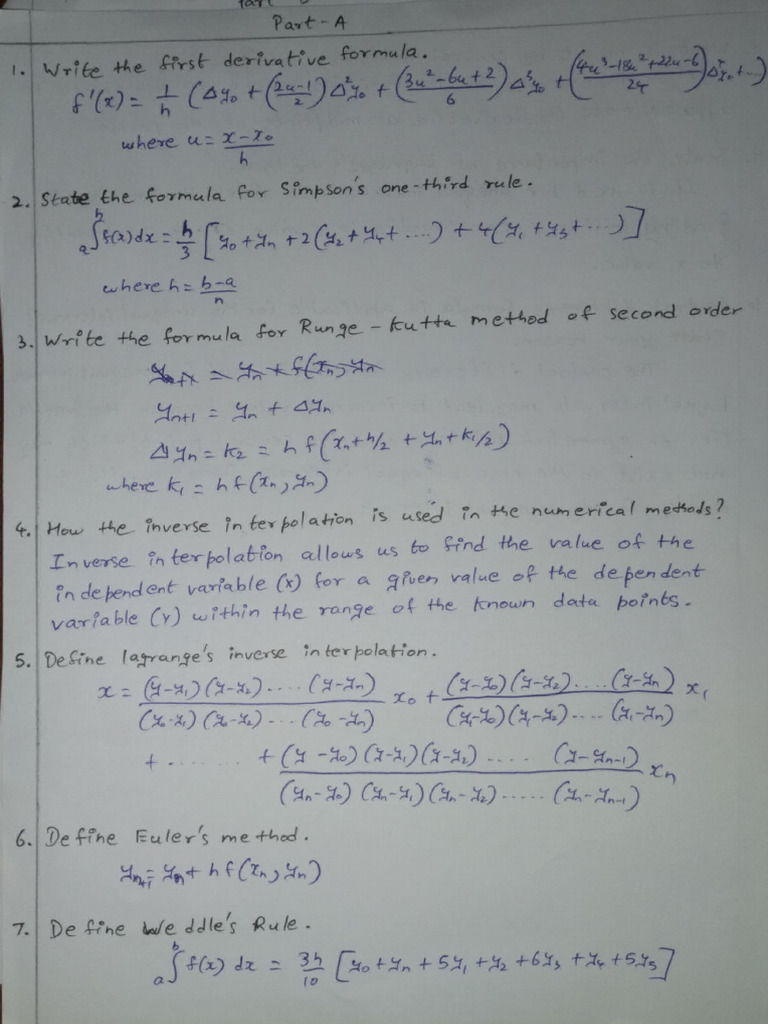 Part - A
1. Write the first derivative formula.
f'(x) = 1/h (Δy₀ + (2u-1/2) Δ²y₀ + (3u²-6u+2/6) Δ³y₀ + (4u³-18u²+22u-6/24) Δ⁴y₀ + ...)
where u = x-x₀/h
2. State the formula for Simpson's one-third rule.
a∫b f(x) dx = h/3 [y₀ + yₙ + 2(y₂ + y₄ + ....) + 4(y₁ + y₃ + ...)]
where h = b-a/n
3. Write the formula for Runge - Kutta method of second order
yₙ₊₁ = yₙ + Δyₙ
Δyₙ = k₂ = h f(xₙ + h/2 + yₙ + k₁/2)
where k₁ = h f(xₙ, yₙ)
4. How the inverse interpolation is used in the numerical methods?
Inverse interpolation allows us to find the value of the
independent variable (x) for a given value of the dependent
variable (y) within the range of the known data points.
5. Define lagrange's inverse interpolation.
x = (y-y₁)(y-y₂)....(y-yₙ)/(y₀-y₁)(y₀-y₂)...(y₀-yₙ) x₀ + (y-y₀)(y-y₂)....(y-yₙ)/(y₁-y₀)(y₁-y₂)....(y₁-yₙ) x₁
+ ........ + (y-y₀)(y-y₁)(y-y₂)....(y-yₙ₋₁)/(yₙ-y₀)(yₙ-y₁)(yₙ-y₂).....(yₙ-yₙ₋₁) xₙ
6. Define Euler's method.
yₙ₊₁ = yₙ + h f(xₙ, yₙ)
7. Define Weddle's Rule.
a∫b f(x) dx = 3h/10 [y₀ + yₙ + 5y₁ + y₂ + 6y₃ + y₄ + 5y₅]